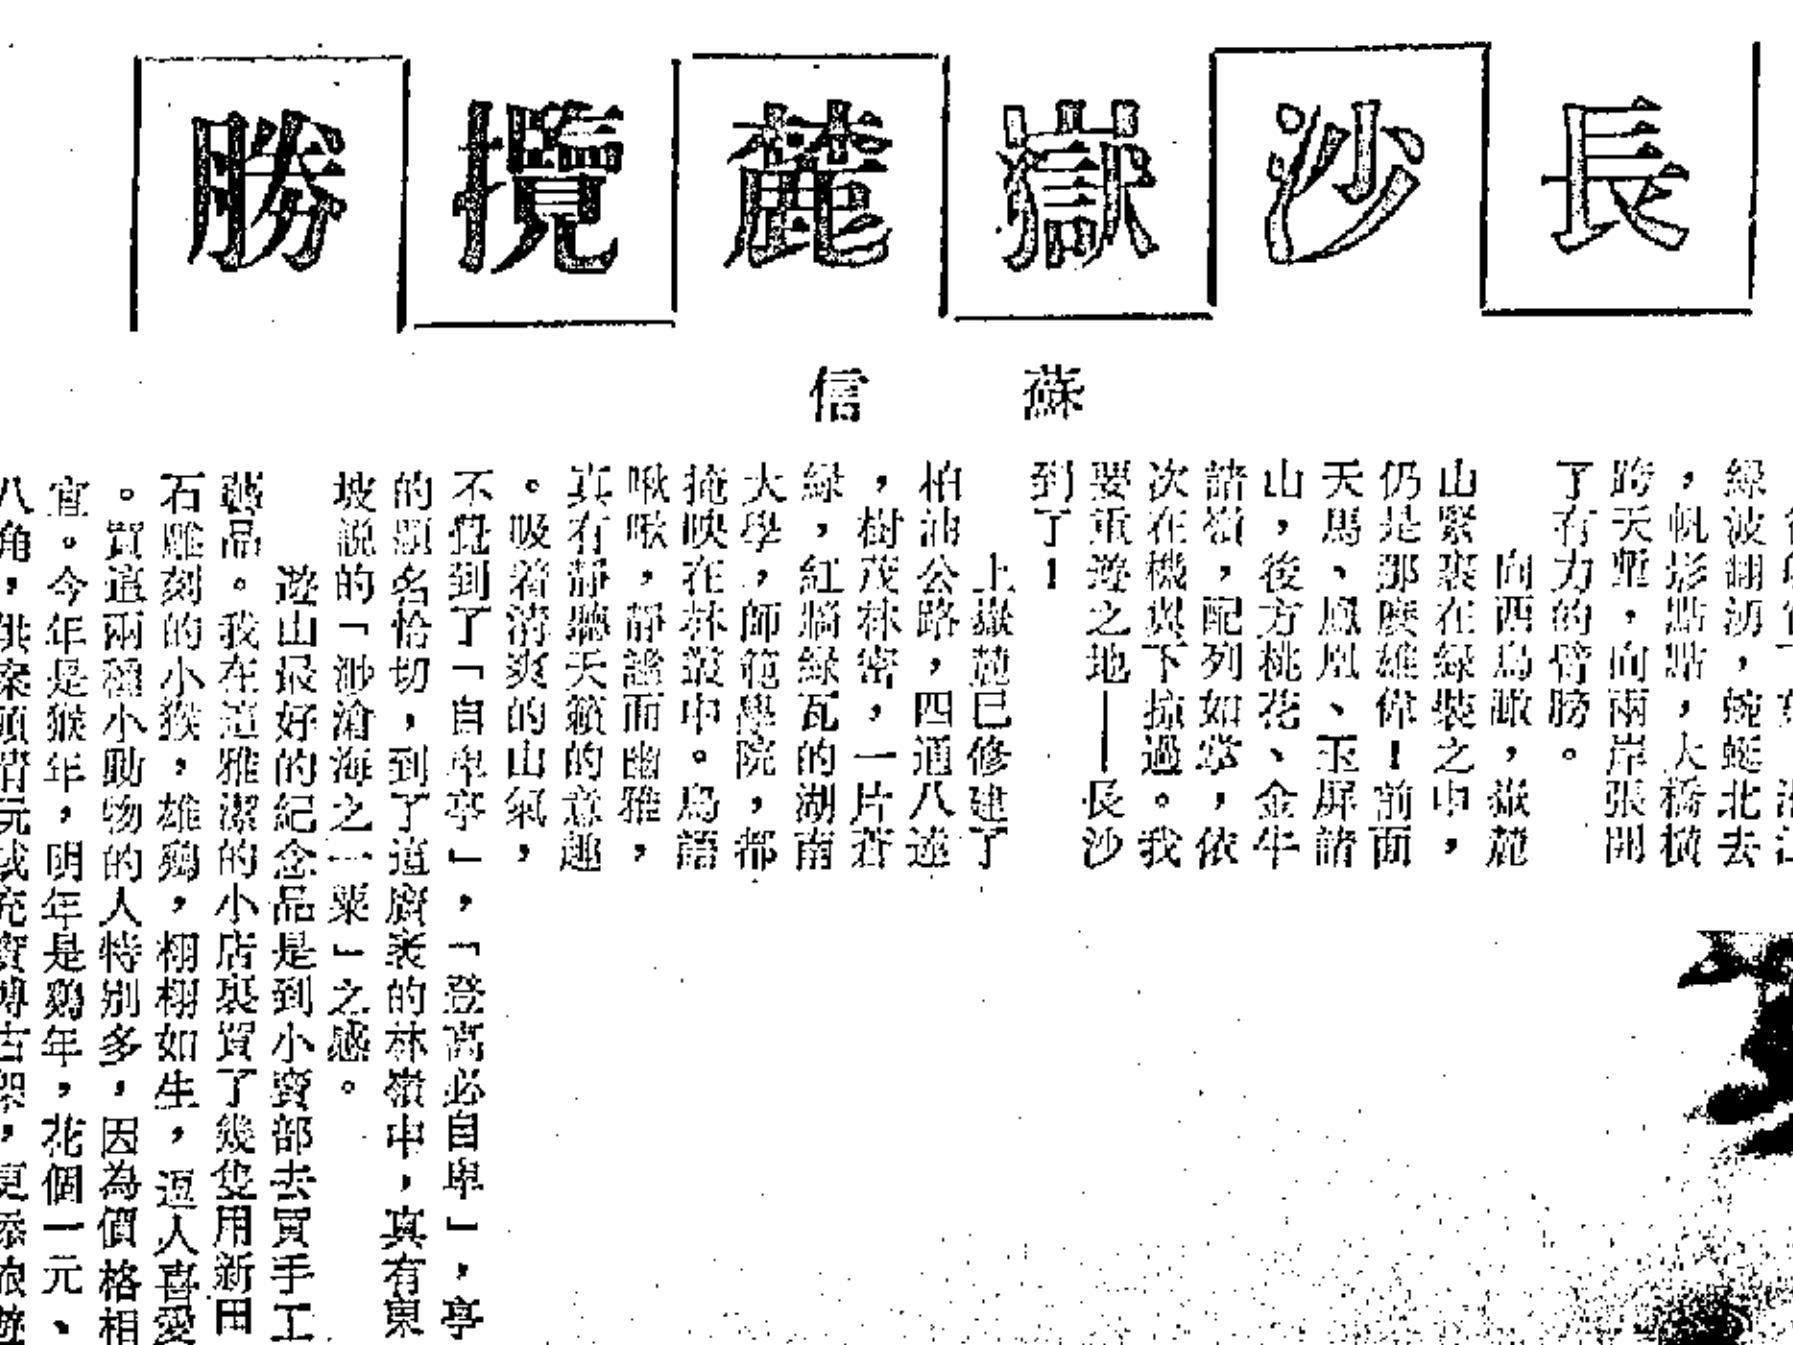 長沙嶽麓攬勝
蘇信
綠波翻沏，蜿蜒北去
，帆影點點，大橋橫
跨天塹，向兩岸張開
了有力的臂膀。
向西鳥瞰，嶽麓
山緊裹在綠裝之中，
仍是那麼雄偉！前面
天馬、鳳凰、玉屏諸
山，後方桃花、金牛
諸嶺，配列如掌，依
次在機翼下掠過。我
要重遊之地——長沙
到了！
上嶽麓已修建了
柏油公路，四通八達
，樹茂林密，一片蒼
綠，紅牆綠瓦的湖南
大學，師範學院，都
掩映在林叢中。鳥語
啾啾，靜謐而幽雅，
真有靜聽天籟的意趣
。吸着清爽的山氣，
不覺到了「自卑亭」，「登高必自卑」，亭
的題名恰切，到了這廣袤的林嶺中，真有東
坡説的「渺滄海之一粟」之感。
遊山最好的紀念品是到小賣部去買手工
藝品。我在這雅潔的小店裏買了幾隻用新田
石雕刻的小猴，雄鷄，栩栩如生，逗人喜愛
。買這兩種小動物的人特別多，因為價格相
宜。今年是猴年，明年是鷄年，花個一元、
八角，供案頭清玩或充實博古架，更添旅遊